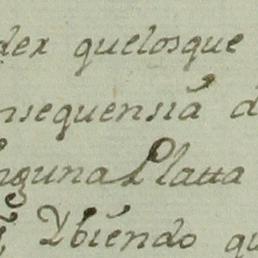 dex quelosque
nsequensiá d
nguna Platta
Ybiendo qu